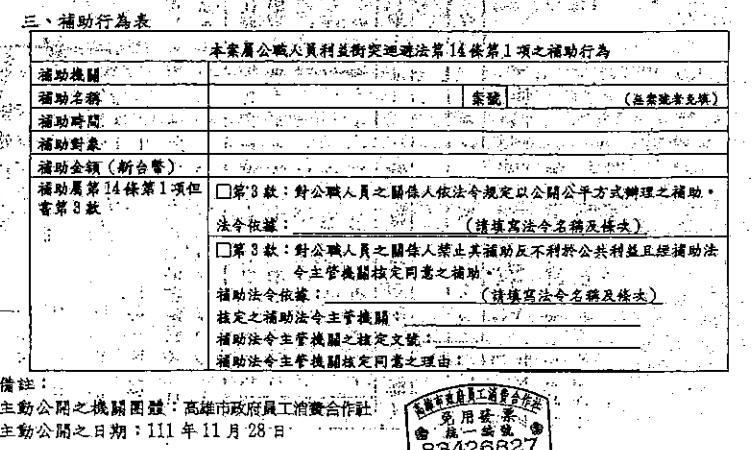 三、補助行為表
本案屬公職人員利益衝突迴避法第14條第1項之補助行為
補助機關
補助名稱 案號 (無案號者免填)
補助時間
補助對象
補助金額(新台幣)
補助屬第14條第1項但書第3款
□第3款:對公職人員之關係人依法令規定以公開公平方式辦理之補助。
法令依據: (請填寫法令名稱及條次)
□第3款:對公職人員之關係人禁止其補助反不利於公共利益且經補助法
令主管機關核定同意之補助
補助法令依據: (請填寫法令名稱及條次)
核定之補助法令主管機關:
補助法令主管機關之核定文號:
補助法令主管機關核定同意之理由:
備註:
主動公開之機關團體:高雄市政府員工消費合作社
主動公開之日期:111年11月28日
高雄市政府員工消費合作社
免用發票
統一編號
83426827